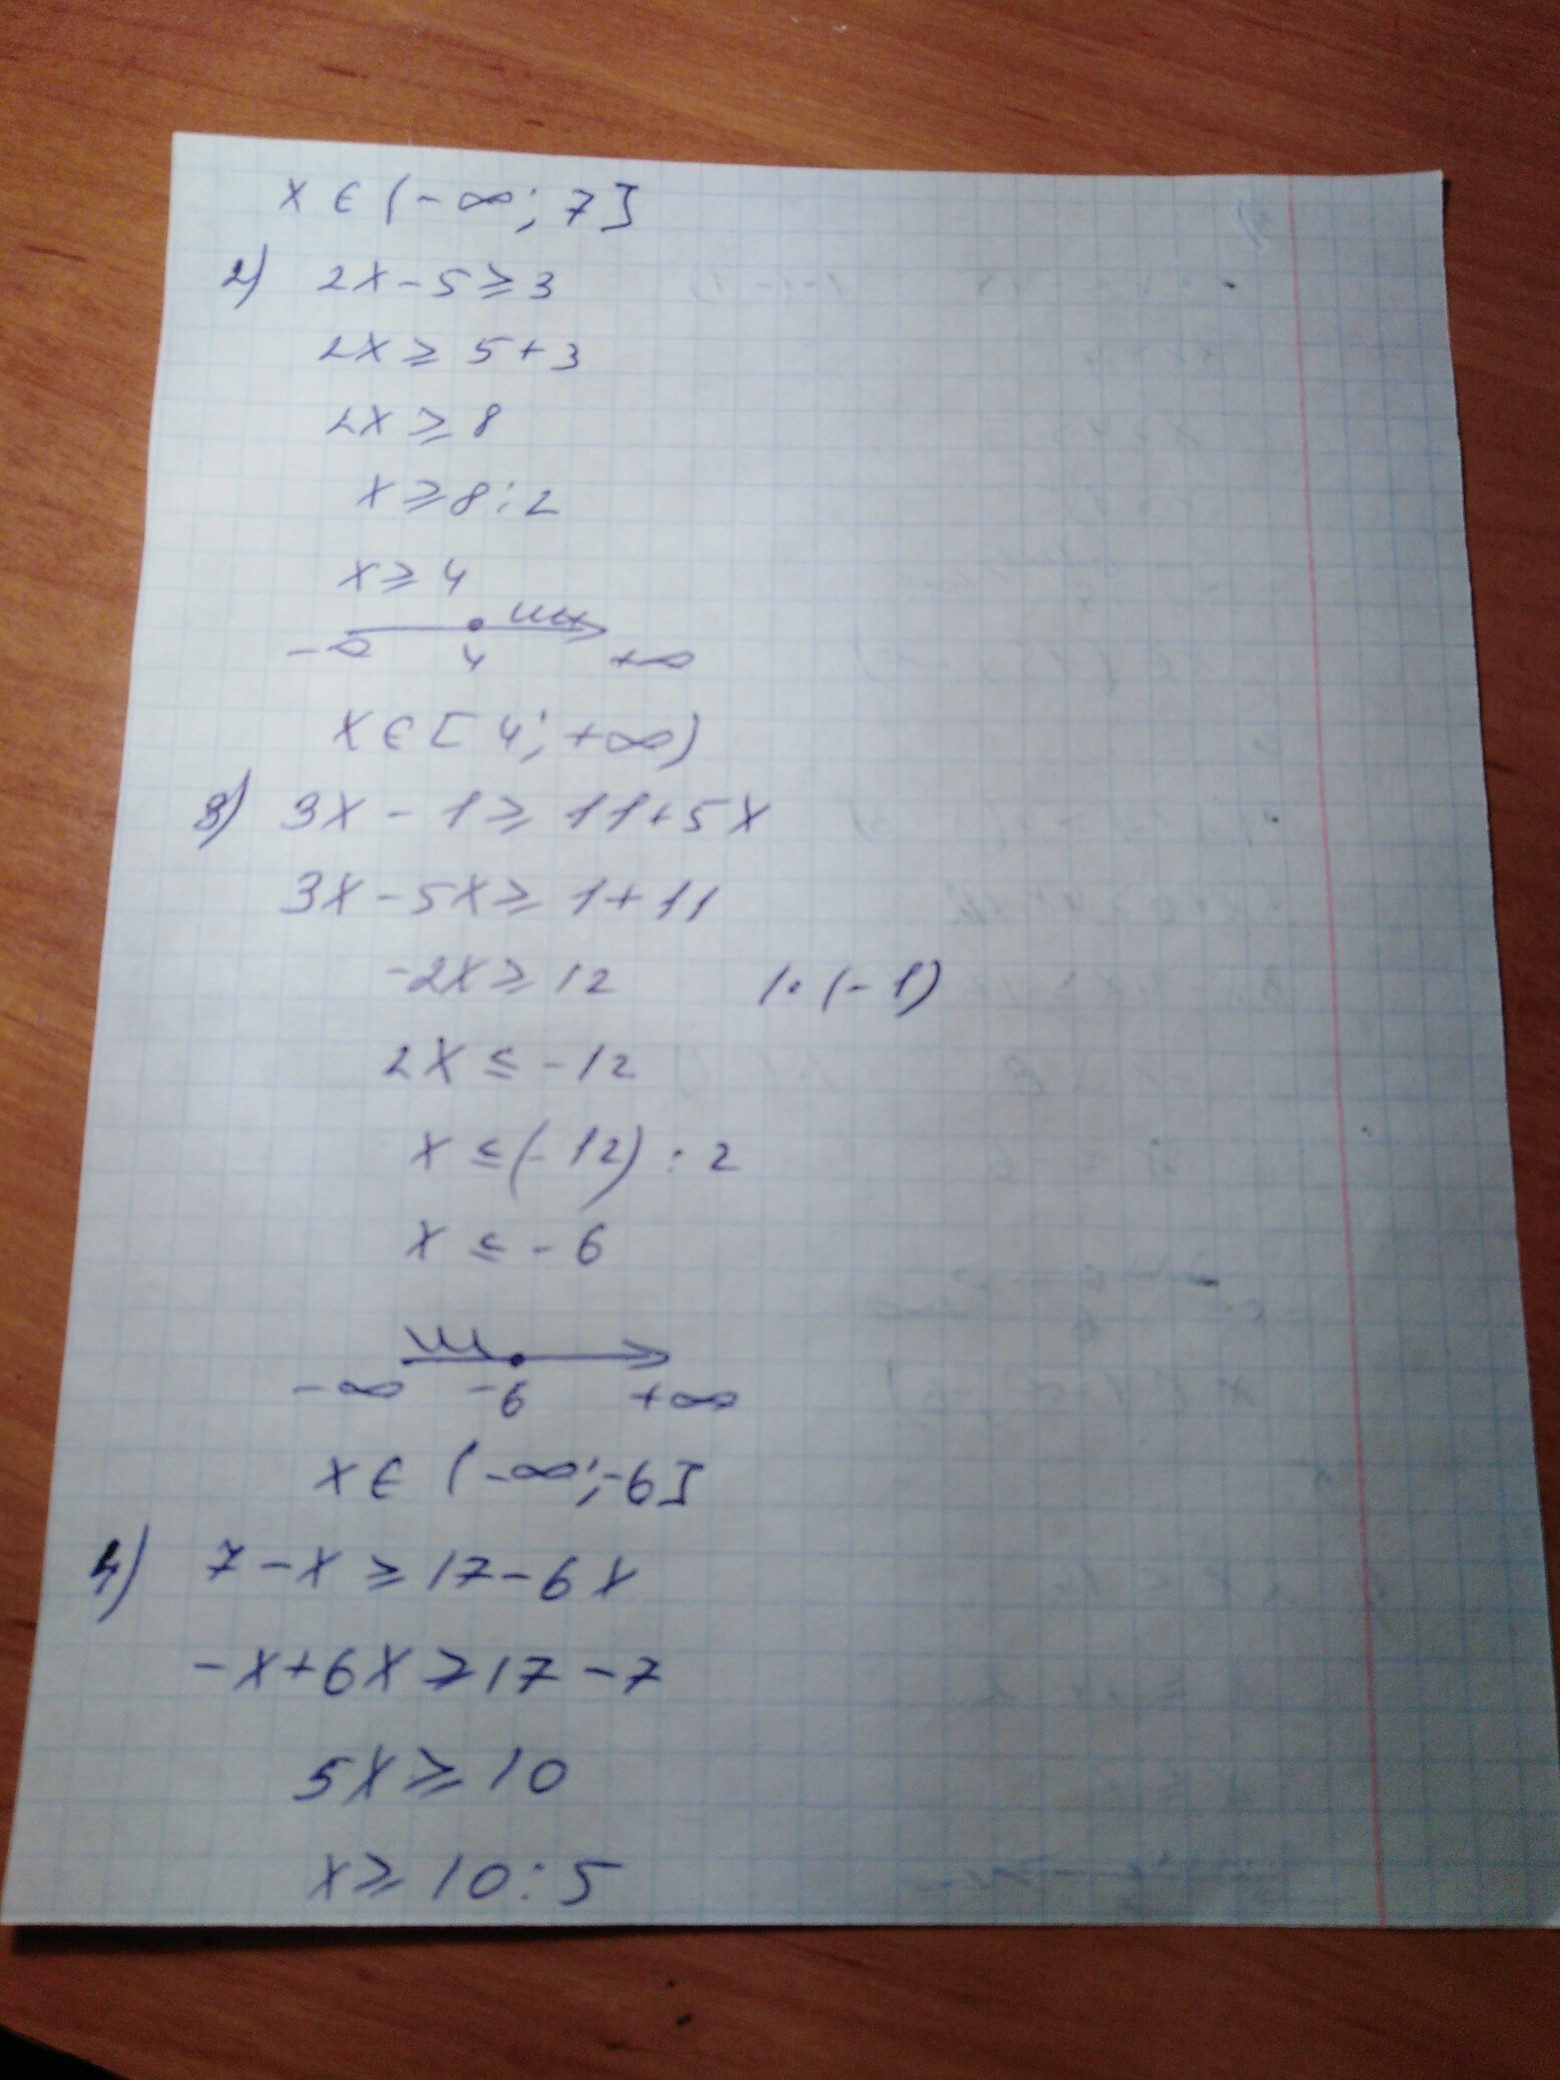 x ∈ (-∞; 7]
2) 2x - 5 ≥ 3
2x ≥ 5 + 3
2x ≥ 8
x ≥ 8 : 2
x ≥ 4
-∞ 4 +∞
x ∈ [4; +∞)
3) 3x - 1 ≥ 11 + 5x
3x - 5x ≥ 1 + 11
-2x ≥ 12 |· (-1)
2x ≤ -12
x ≤ (-12) : 2
x ≤ -6
-∞ -6 +∞
x ∈ (-∞; -6]
4) 7 - x ≥ 17 - 6x
-x + 6x ≥ 17 - 7
5x ≥ 10
x ≥ 10 : 5